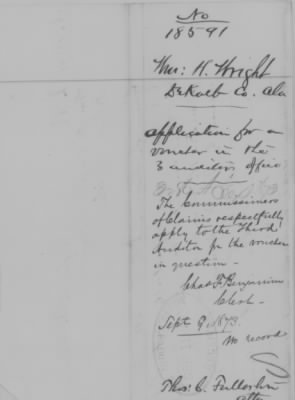 No
18591
Wm: H. Wright
DeKalb Co. Ala
application for a
voucher in the
3 auditors office
The Commissioners
of Claims respectfully
apply to the Third
Auditor for the voucher
in question -
Chas F. Benjamin
Clerk -
Sept 9, 1873.
No record
Thos: C. Fullerton
atty